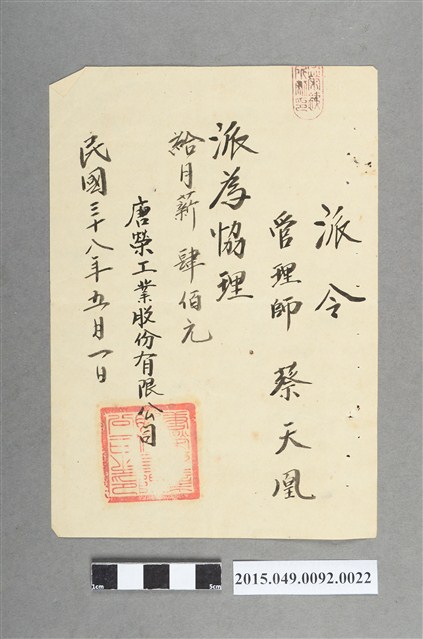 派令
管理師 蔡天凰
派為協理
給月薪 肆佰元
唐榮工業股份有限公司
民國三十八年五月一日
1cm
5cm
2015.049.0092.0022